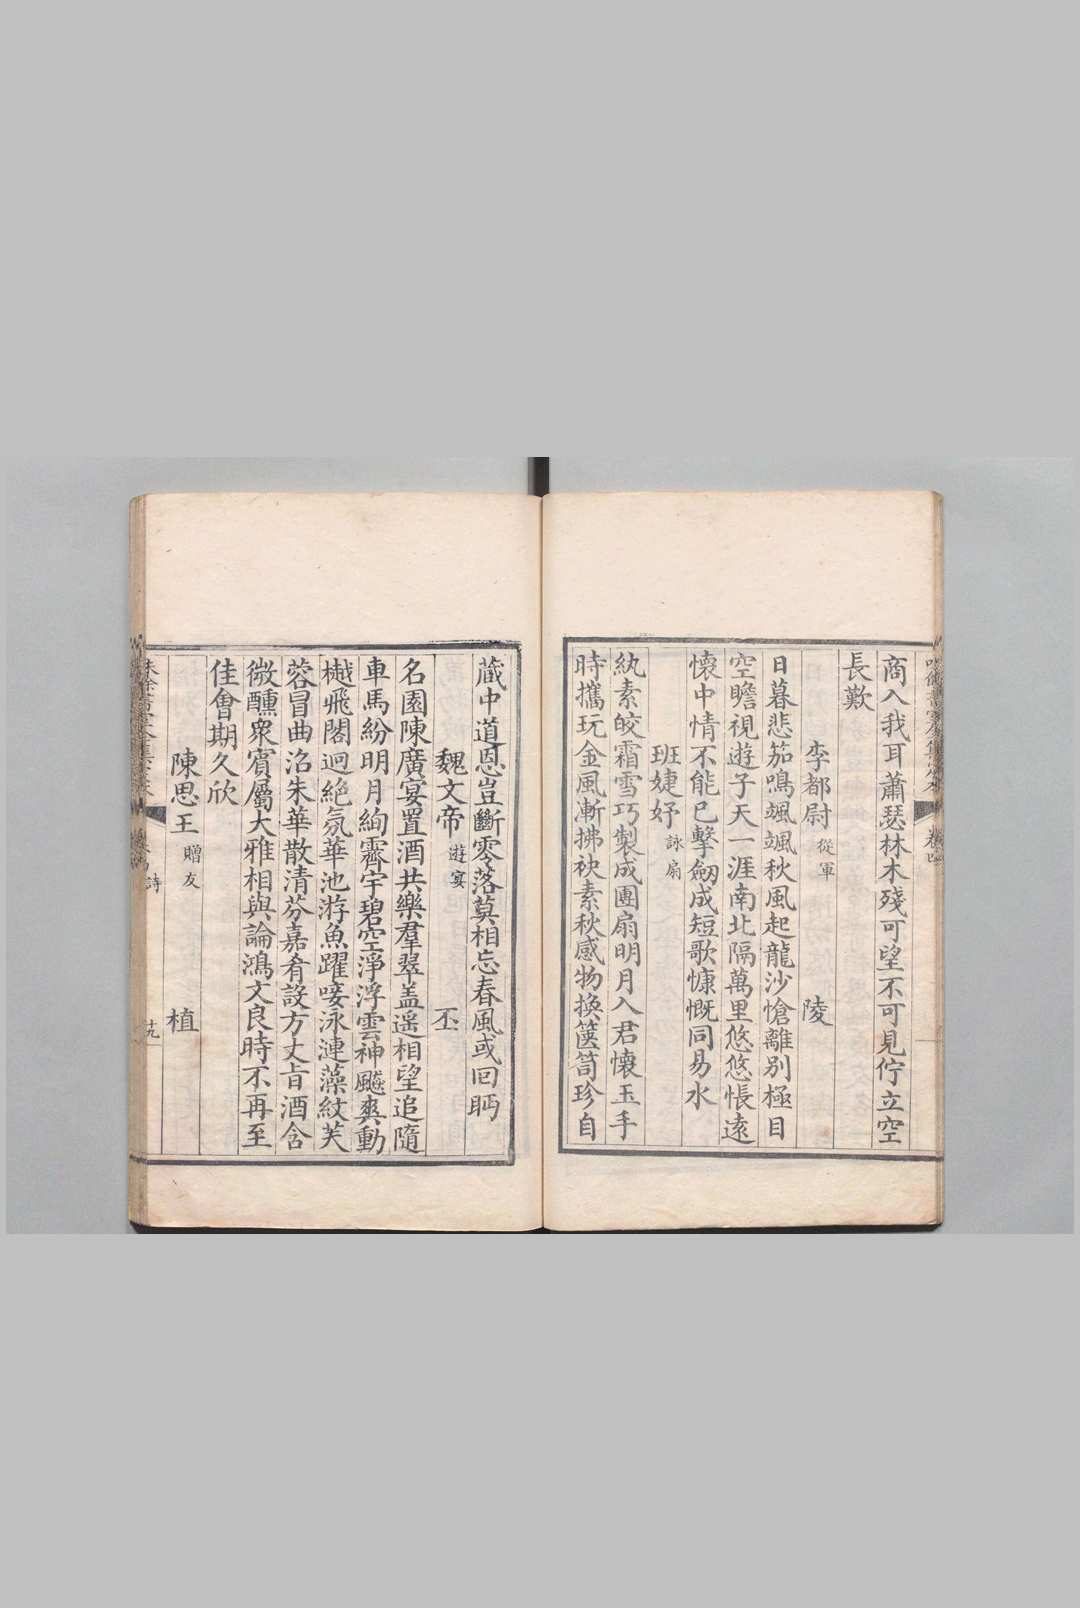 商入我耳蕭瑟林木殘可望不可見佇立空
長歎
李都尉 從軍 陵
日暮悲笳鳴颯颯秋風起龍沙愴離別極目
空瞻視遊子天一涯南北隔萬里悠悠悵遠
懷中情不能已擊劒成短歌慷慨同易水
班婕妤 詠扇
紈素皎霜雪巧製成團扇明月入君懷玉手
時攜玩金風漸拂袂素秋感物換篋笥珍自
蔵中道恩豈斷零落莫相忘春風或回眄
魏文帝 遊宴 丕
名園陳廣宴置酒共樂羣翠盖遥相望追隨
車馬紛明月絢霽宇碧空淨浮雲神飇爽動
樾飛閣迥絕氛華池游魚躍唼泳漣藻紋芙
蓉冒曲沼朱華散清芬嘉肴設方丈旨酒含
微醺衆賓屬大雅相與論鴻文良時不再至
佳會期久欣
陳思王 贈友 植
味餘書室全集定本 卷四 詩 十九